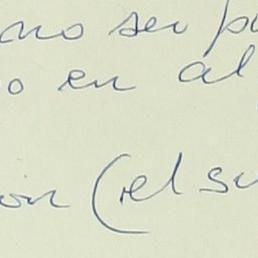 no ser p
o en al
on (el su